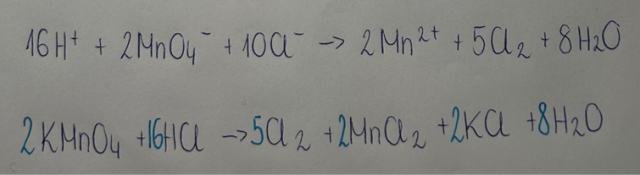 16H⁺ + 2MnO₄⁻ + 10Cl⁻ → 2Mn²⁺ + 5Cl₂ + 8H₂O
2KMnO₄ + 16HCl → 5Cl₂ + 2MnCl₂ + 2KCl + 8H₂O